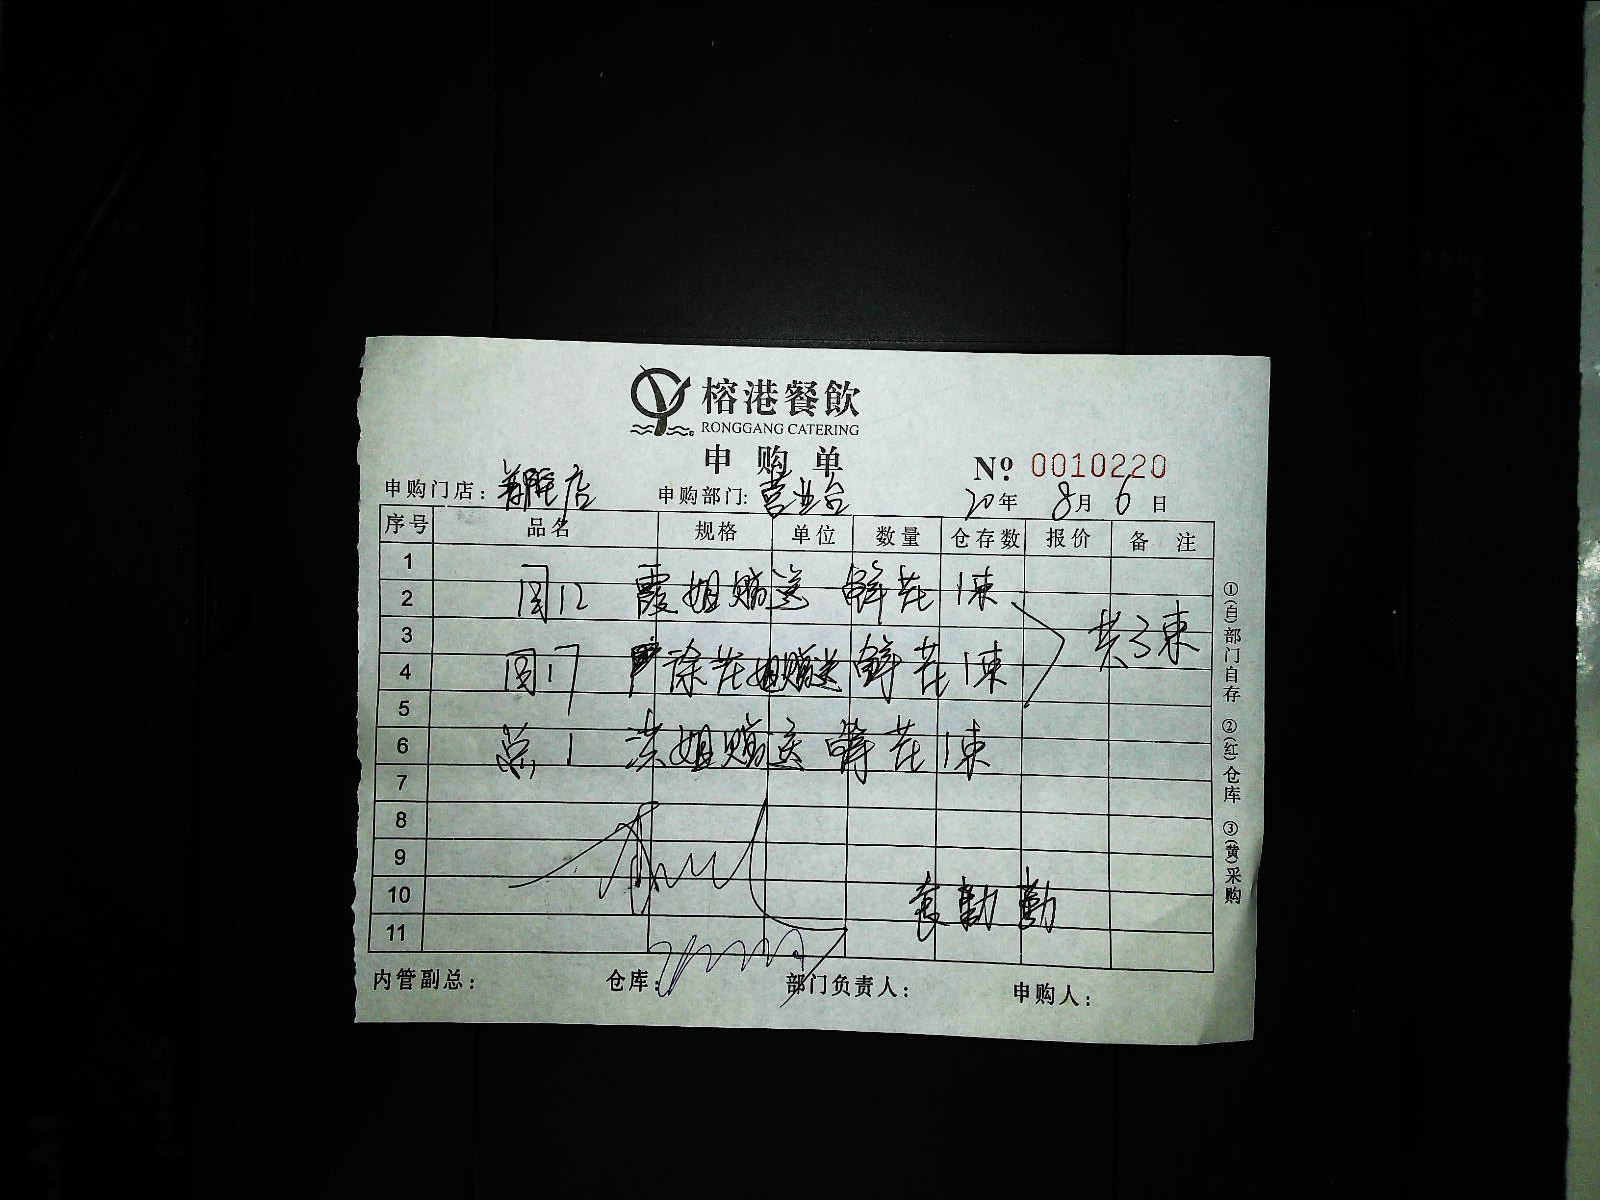 榕港餐飲
RONGGANG CATERING
申购单
№ 0010220
申购门店： 店 申购部门: 营业台 20年 8月 6日
序号 品名 规格 单位 数量 仓存数 报价 备注
1
2 图12 霞姐赠送 鲜花 1束
3 共3束
4 图17 徐花姐赠送 鲜花 1束
5
6 总1 洪姐赠送 鲜花 1束
7
8
9
10 袁勤勤
11
内管副总： 仓库： 部门负责人： 申购人：
①(白)部门自存 ②(红)仓库 ③(黄)采购